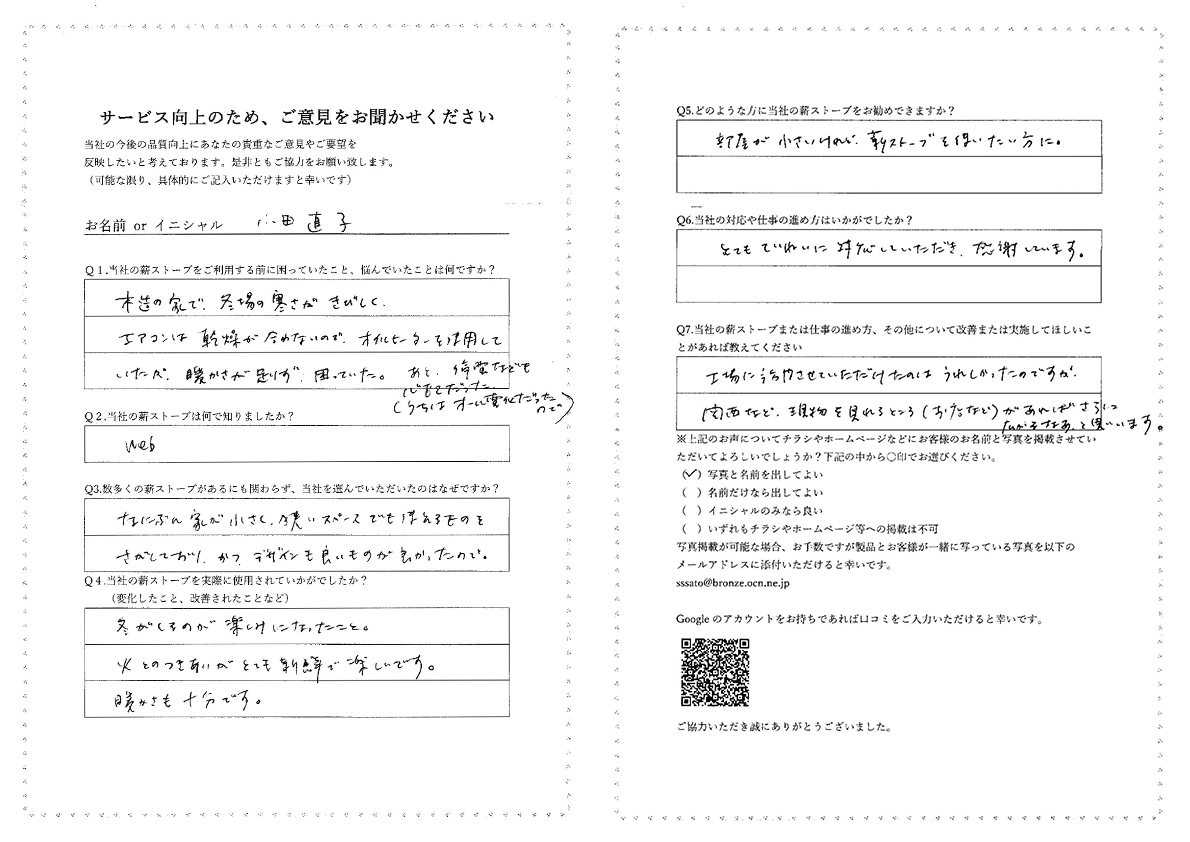 サービス向上のため、ご意見をお聞かせください
当社の今後の品質向上にあなたの貴重なご意見やご要望を
反映したいと考えております。是非ともご協力をお願い致します。
(可能な限り、具体的にご記入いただけますと幸いです)
お名前 or イニシャル 小田 直子
Q1.当社の薪ストーブをご利用する前に困っていたこと、悩んでいたことは何ですか?
木造の家で、冬場の寒さがきびしく、
エアコンは乾燥が合わないので、オイルヒーターを使用して
いたが、暖かさが足りず、困っていた。 あと、停電なども
心もとなかった。
(うちはオール電化だったので)
Q2.当社の薪ストーブは何で知りましたか?
web
Q3.数多くの薪ストーブがあるにも関わらず、当社を選んでいただいたのはなぜですか?
なにぶん家が小さく、狭いスペースでも使えるものを
さがしており、かつ、デザインも良いものが良かったので。
Q4.当社の薪ストーブを実際に使用されていかがでしたか?
(変化したこと、改善されたことなど)
冬がくるのが楽しみになったこと。
火とのつきあいがとても新鮮で楽しいです。
暖かさも十分です。
Q5.どのような方に当社の薪ストーブをお勧めできますか?
部屋が小さいけれど、薪ストーブを使いたい方に。
Q6.当社の対応や仕事の進め方はいかがでしたか?
とてもていねいに対応していただき、感謝しています。
Q7.当社の薪ストーブまたは仕事の進め方、その他について改善または実施してほしいこ
とがあれば教えてください
工場に訪問させていただけたのはうれしかったのですが、
関西など、現物を見れるところ(お店など)があればさらに
広がるなあ、と思います。
※上記のお声についてチラシやホームページなどにお客様のお名前と写真を掲載させてい
ただいてよろしいでしょうか?下記の中から〇印でお選びください。
(✓) 写真と名前を出してよい
( ) 名前だけなら出してよい
( ) イニシャルのみなら良い
( ) いずれもチラシやホームページ等への掲載は不可
写真掲載が可能な場合、お手数ですが製品とお客様が一緒に写っている写真を以下の
メールアドレスに添付いただけると幸いです。
sssato@bronze.ocn.ne.jp
Google のアカウントをお持ちであれば口コミをご入力いただけると幸いです。
ご協力いただき誠にありがとうございました。